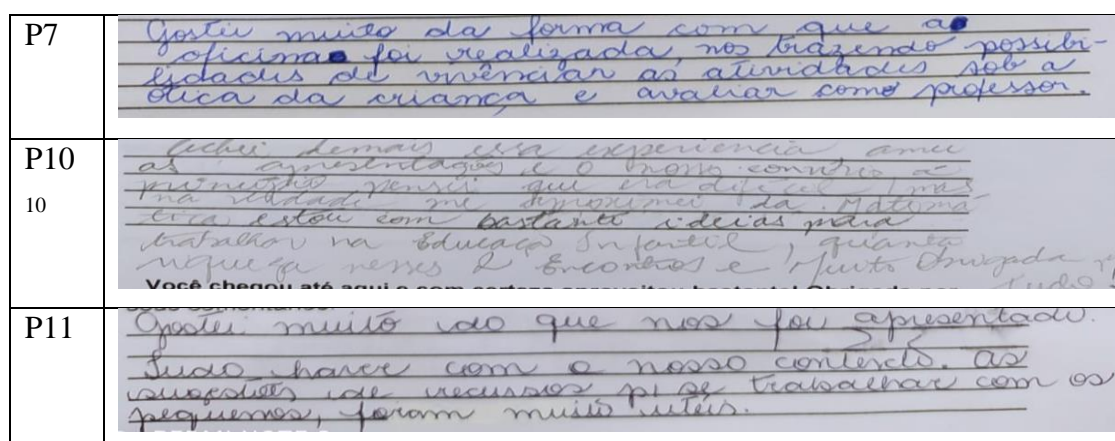 P7
Gostei muito da forma com que a
oficina foi realizada, nos trazendo possibi-
lidades de vivênciar as atividades sob a
ótica da criança e avaliar como professor.
P10
10
Achei demais essa experiencia, amei
as apresentações e o nosso convivio a
principio pensei que era dificil, mas
na verdade me aproximei da Matemá
tica estou com bastante ideias para
trabalhar na Educaçã Infantil, quanta
riqueza nesses 2 Encontros e Muito Obrigada
Tudo!
Você chegou até aqui e com certeza aproveitou bastante! Obrigada por
seus comentários.
P11
Gostei muito do que nos foi apresentado.
Tudo haver com o nosso conteúdo. As
sugestões de recursos p/ se trabalhar com os
pequenos, foram muito uteis.